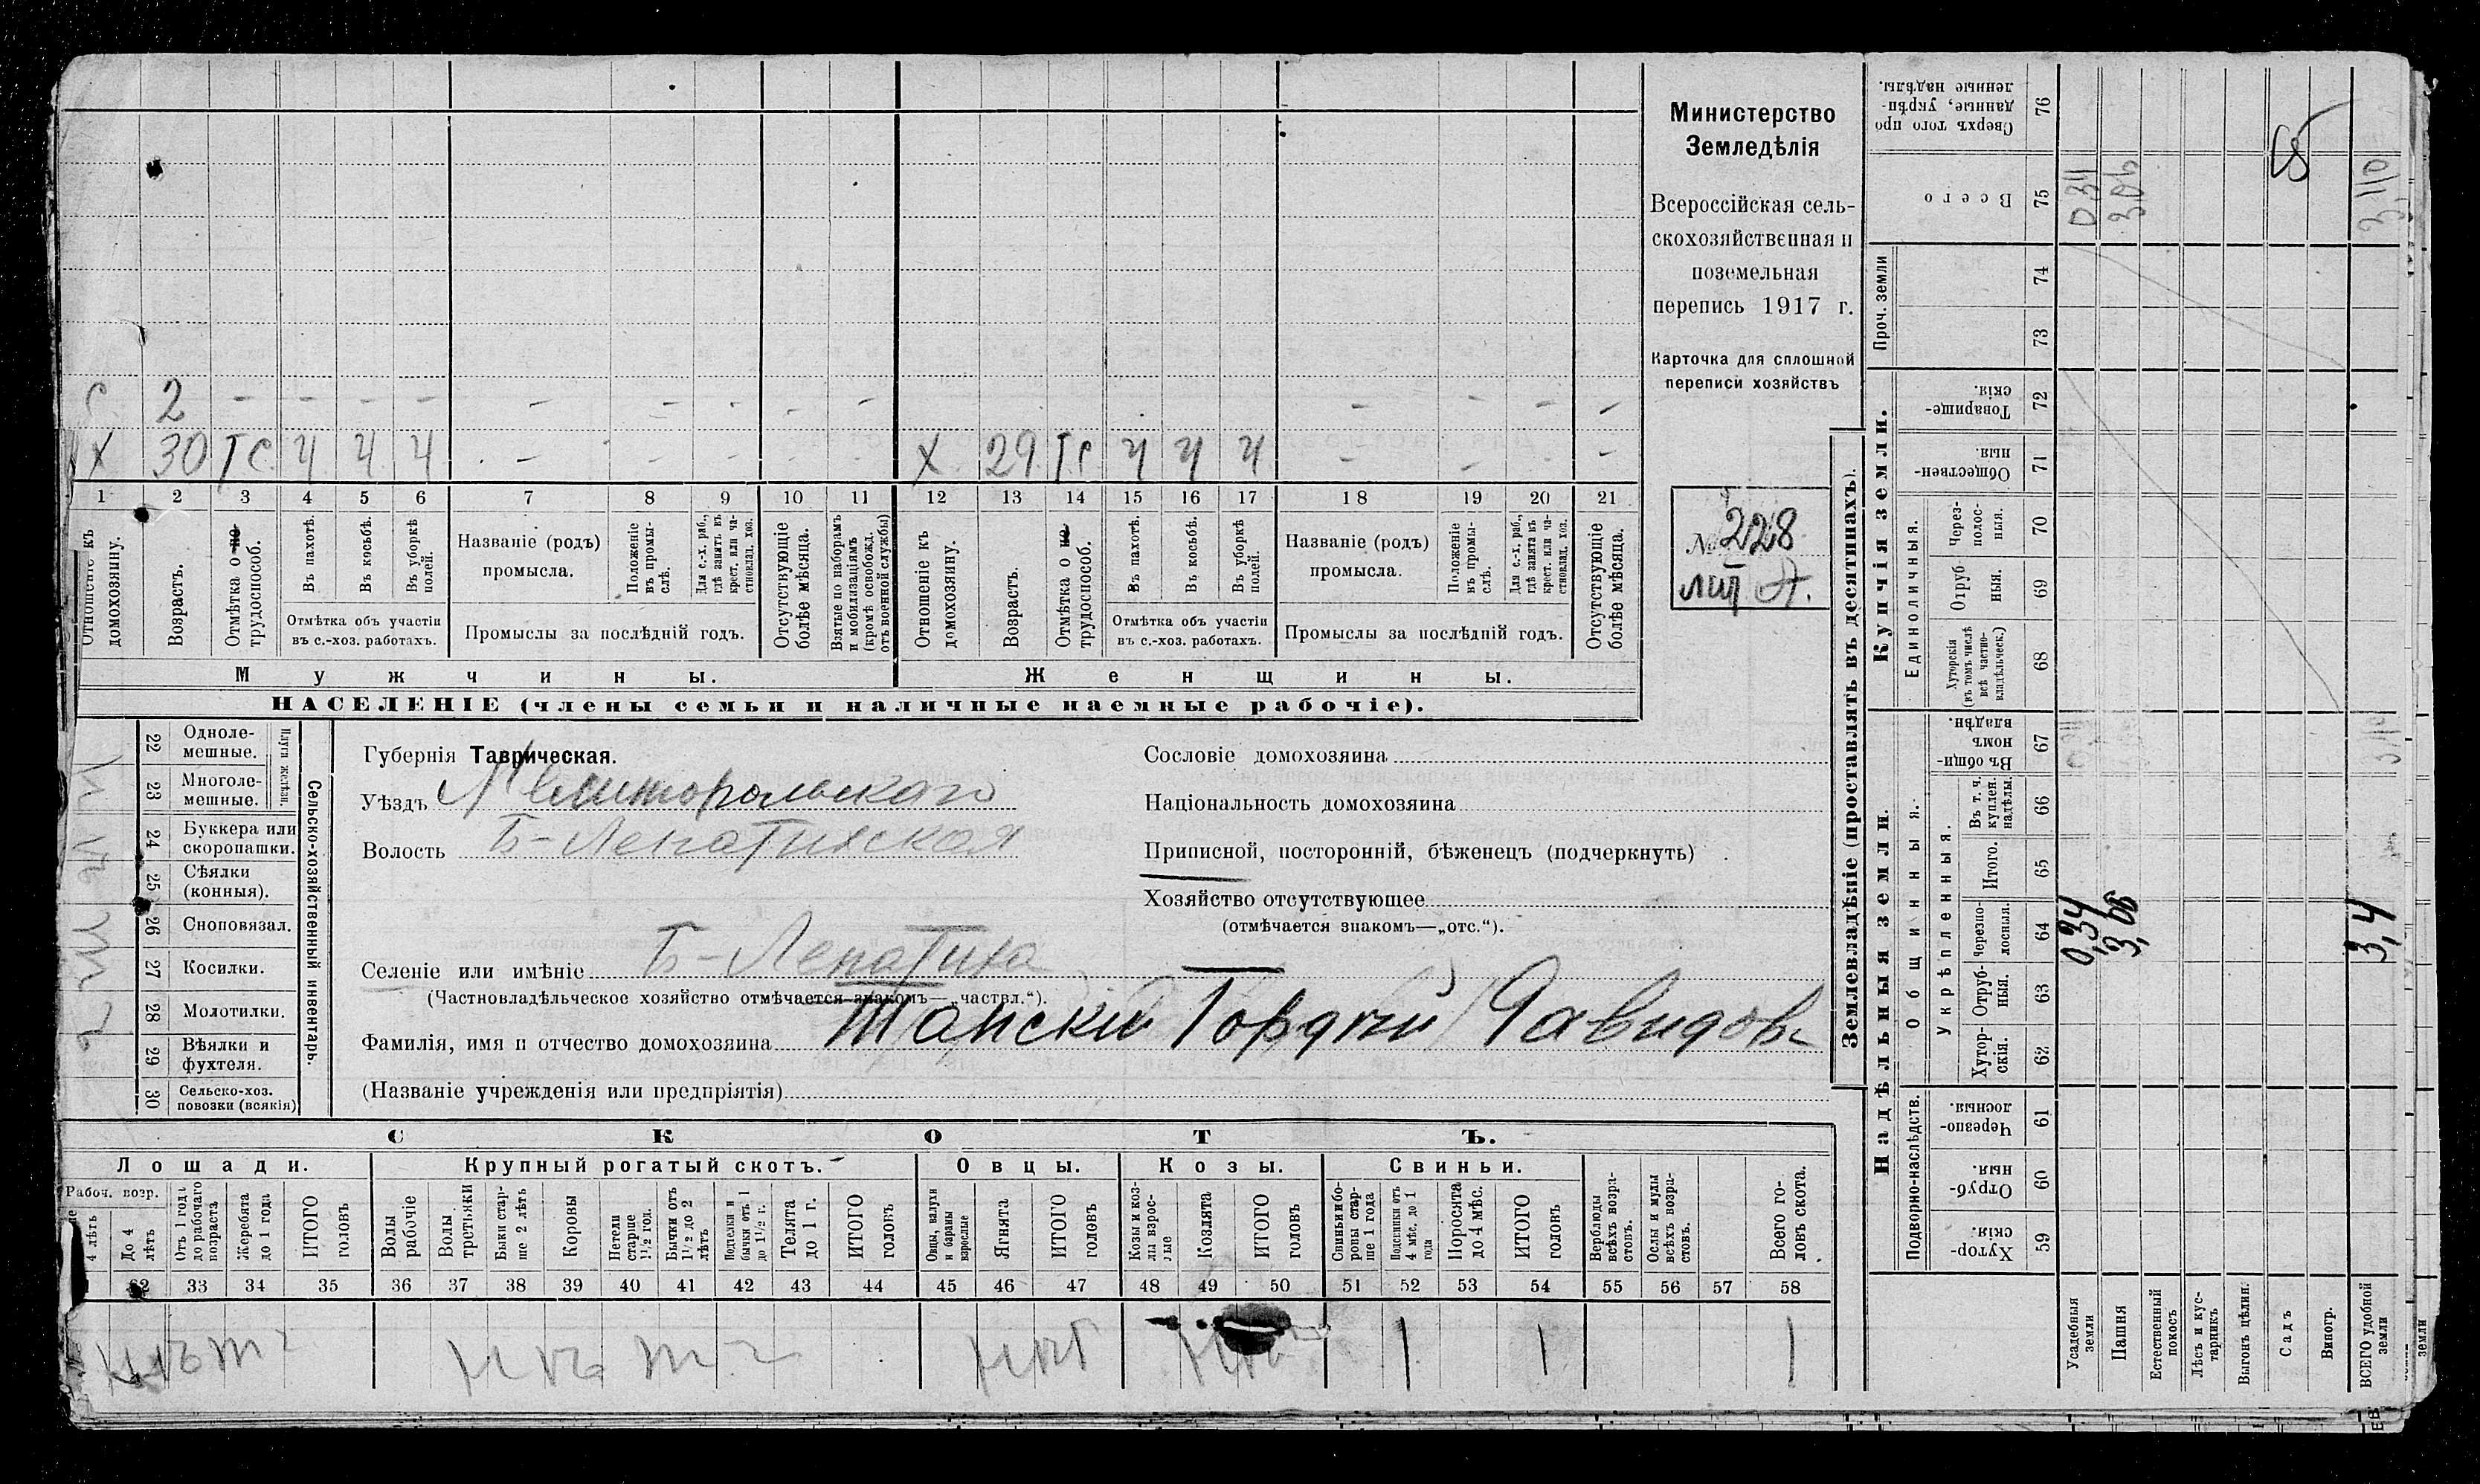 Министерство
Земледѣлія
Всероссійская сель-
скохозяйственная и
поземельная
перепись 1917 г.
Карточка для сплошной
переписи хозяйствъ
№ 228
лит А.
С 2 - - - - - - - - - - - - -
Х 30 ТС Ч Ч Ч - - - - - Х 29 ТС Ч Ч Ч - - - -
1 2 3 4 5 6 7 8 9 10 11 12 13 14 15 16 17 18 19 20 21
Отношеніе къ домохозяину.
Возрастъ.
Отмѣтка о не трудоспособ.
Въ пахотѣ.
Въ косьбѣ.
Въ уборкѣ полей.
Отмѣтка объ участіи
въ с.-хоз. работахъ.
Названіе (родъ)
промысла.
Положеніе въ промы-слѣ.
Для с.-х. раб., гдѣ занятъ въ крест. или ча-стновлад. хоз.
Промыслы за послѣдній годъ.
Отсутствующіе болѣе мѣсяца.
Взятые по наборамъ и мобилизаціямъ (кромѣ освобожд. отъ военной службы)
Отношеніе къ домохозяину.
Возрастъ.
Отмѣтка о не трудоспособ.
Въ пахотѣ.
Въ косьбѣ.
Въ уборкѣ полей.
Отмѣтка объ участіи
въ с.-хоз. работахъ.
Названіе (родъ)
промысла.
Положеніе въ промы-слѣ.
Для с.-х. раб., гдѣ занята въ крест. или ча-стновлад. хоз.
Промыслы за послѣдній годъ.
Отсутствующіе болѣе мѣсяца.
Мужчины. Женщины.
НАСЕЛЕНІЕ (члены семьи и наличные наемные рабочіе).
22 Одноле-мешные.
23 Многоле-мешные.
Плуги желѣзн.
24 Буккера или скоропашки.
25 Сѣялки (конныя).
26 Сноповязал.
27 Косилки.
28 Молотилки.
29 Вѣялки и фухтеля.
30 Сельско-хоз. повозки (всякія)
Сельско-хозяйственный инвентарь.
Губернія Таврическая.
Уѣздъ Мелитопольскаго
Волость Б-Лепатихская
Селеніе или имѣніе Б-Лепатиха
(Частновладѣльческое хозяйство отмѣчается знакомъ—„частвл.“).
Фамилія, имя и отчество домохозяина Танский Гордѣй Давидовъ
(Названіе учрежденія или предпріятія)
Сословіе домохозяина
Національность домохозяина
Приписной, посторонній, бѣженецъ (подчеркнуть)
Хозяйство отсутствующее
(отмѣчается знакомъ—„отс.“).
СКОТЪ.
Лошади. Крупный рогатый скотъ. Овцы. Козы. Свиньи.
Рабоч. возр.
4 лѣтъ
До 4 лѣтъ
Отъ 1 года до рабочаго возраста
Жеребята до 1 года
ИТОГО головъ
Волы рабочіе
Волы третьяки
Быки стар-ше 2 лѣтъ
Коровы
Нетели старше 1½ год.
Бычки отъ 1½ до 2 лѣтъ
Подтелки и бычки отъ 1 до 1½ г.
Телята до 1 г.
ИТОГО головъ
Овцы, валухи и бараны взрослые
Ягнята
ИТОГО головъ
Козы и коз-лы взрос-лые
Козлята
ИТОГО головъ
Свиньи и бо-ровы стар-ше 1 года
Подсвинки отъ 4 мѣс. до 1 года
Поросята до 4 мѣс.
ИТОГО головъ
Верблюды всѣхъ возра-стовъ.
Ослы и мулы всѣхъ возра-стовъ.
Всего го-ловъ скота.
32 33 34 35 36 37 38 39 40 41 42 43 44 45 46 47 48 49 50 51 52 53 54 55 56 57 58
нѣт нѣт нѣт нѣт 1 1 1
Землевладѣніе (проставлять въ десятинахъ).
Надѣльныя земли. Купчія земли.
Подворно-наслѣдств.
Общинныя.
Укрѣпленныя.
Единоличныя.
Проч. земли
Хутор-скія. 59
Отруб-ныя. 60
Черезпо-лосныя. 61
Хутор-скія. 62
Отруб-ныя. 63
Черезпо-лосныя. 64
Итого. 65
Въ т. ч. куплен. надѣлы. 66
Въ общи-номъ владѣн. 67
Хуторскія (въ томъ числѣ всѣ частно-владѣльческ.) 68
Отруб-ныя. 69
Через-полос-ныя. 70
Обществен-ныя. 71
Товарище-скія. 72
73
74
Всего 75
Сверхъ того про-данные, укрѣп-ленные надѣлы. 76
Усадебныя земли
Пашня
Естественный покосъ
Лѣсъ и кус-тарникъ
Выгонъ цѣлин.
Садъ
Виногр.
ВСЕГО удобной земли
0,34
3,06
3,4
0,34
3,06
3,40